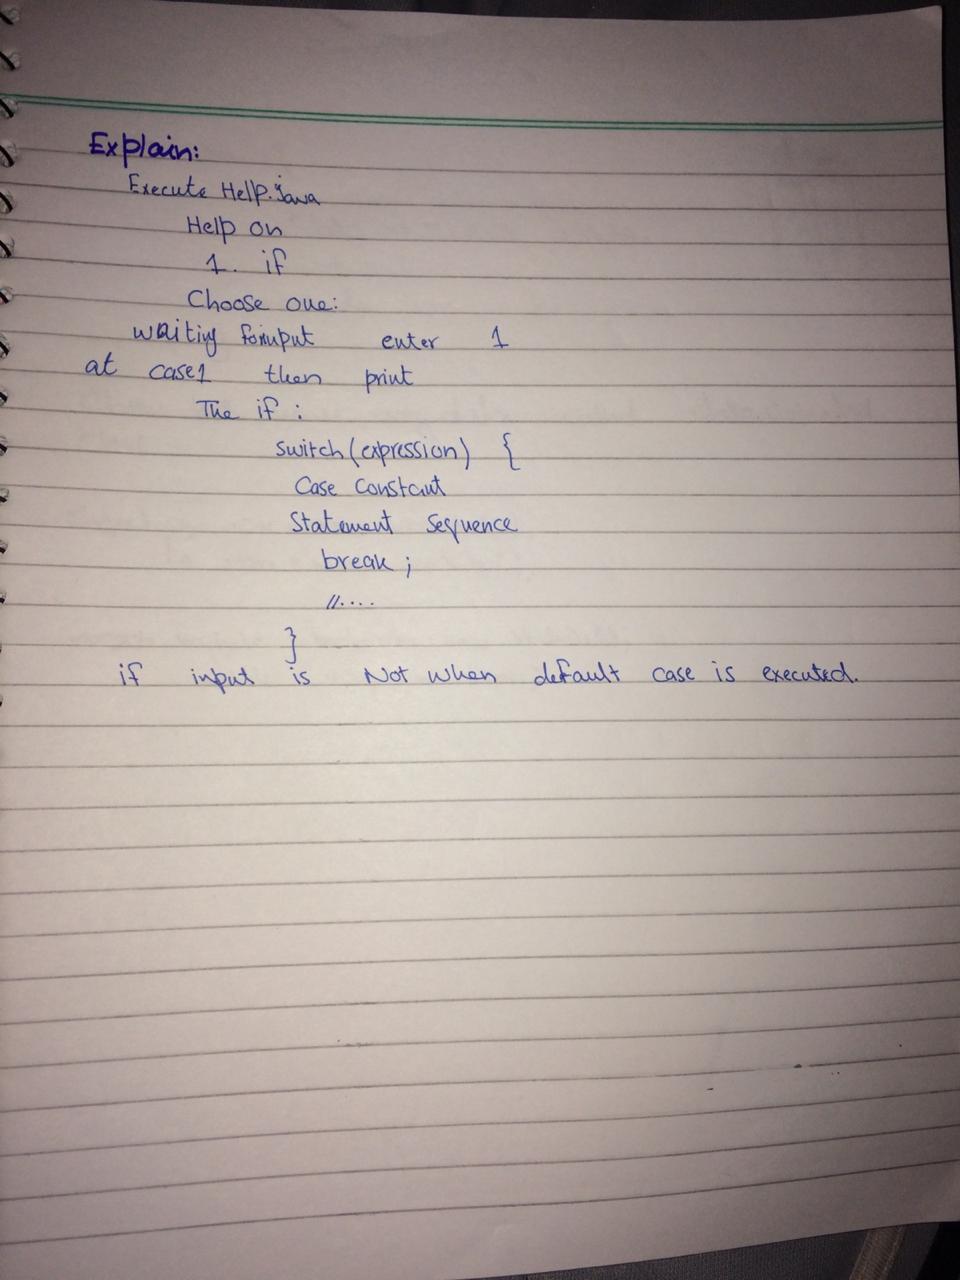 Explain:
Execute Help.java
Help on
1. if
Choose one:
waiting forinput enter 1
at case1 then print
The if :
switch(expression) {
Case Constant
Statement Sequence
break ;
//....
}
if input is Not when default case is executed.